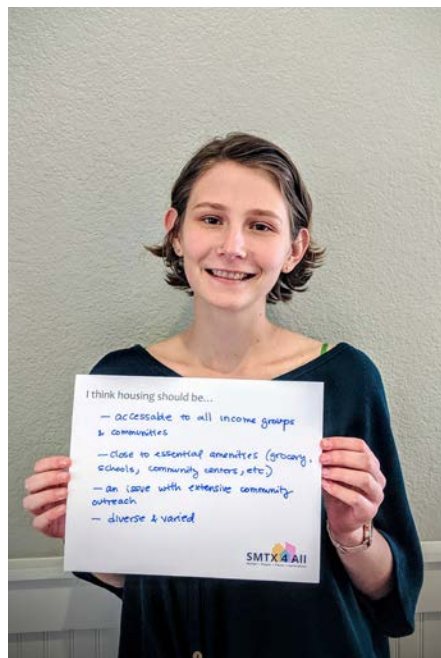 I think housing should be...
— accessable to all income groups
& communities
— close to essential amenities (grocery,
schools, community centers, etc)
— an issue with extensive community
outreach
— diverse & varied
SMTX 4 All